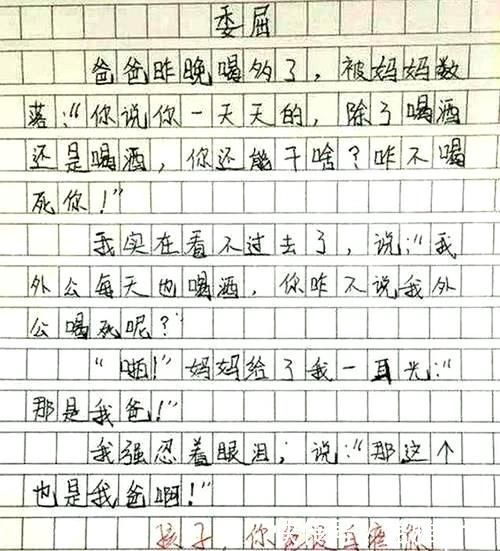 委屈
爸爸昨晚喝多了，被妈妈数
落：“你说你一天天的，除了喝酒
还是喝酒，你还能干啥？咋不喝
死你！”
我实在看不过去了，说：“我
外公每天也喝酒，你咋不说我外
公喝死呢？”
“啪！”妈妈给了我一耳光：“
那是我爸！”
我强忍着眼泪，说：“那这个
也是我爸啊！”
孩子，你